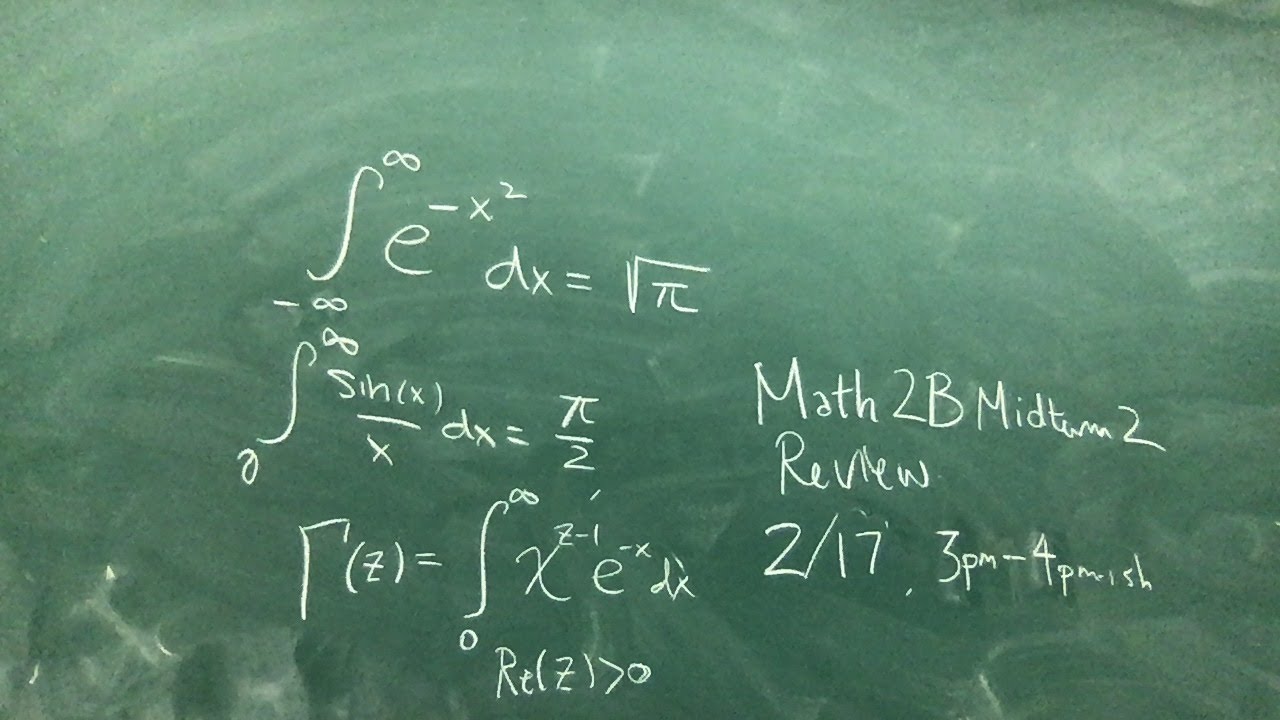 ∫_{-∞}^{∞} e^{-x^2} dx = √π
∫_{0}^{∞} sin(x)/x dx = π/2
Γ(z) = ∫_{0}^{∞} x^{z-1} e^{-x} dx
Re(z)>0
Math 2B Midterm 2
Review
2/17, 3pm-4pm-ish